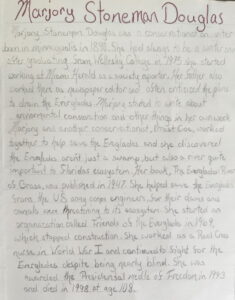 Marjory Stoneman Douglas
Marjory Stoneman Douglas was a conservationist writer
born in minneapolis in 1890. She had always to be a writer and
after graduating from Wellesley College in 1912 she started
working at Miami Herald as a society reporter. Her father also
worked there as newspaper editor and often criticized the plans
to drain the Everglades. Marjory started to write about
environmental conservation and other things in her own work.
Marjory and another conservationist, Ernest Coe, worked
together to help save the Everglades and she discovered
the Everglades arent just a swamp, but also a river quite
important to Floridas ecosystem. Her book, The Everglades: River
of Grass, was published in 1947. She helped save the Everglades
from the U.S. army corps engineers, for their dams and
canals were threatening to its ecosystem. She started an
organization called Friends of the Everglades in 1969
which stopped construction. She worked as a Red Cross
nurse in World War I and continued to fight for the
Everglades despite being nearly blind. She was
awarded the Presidential medle of Freedom in 1993
and died in 1998 at age 108.